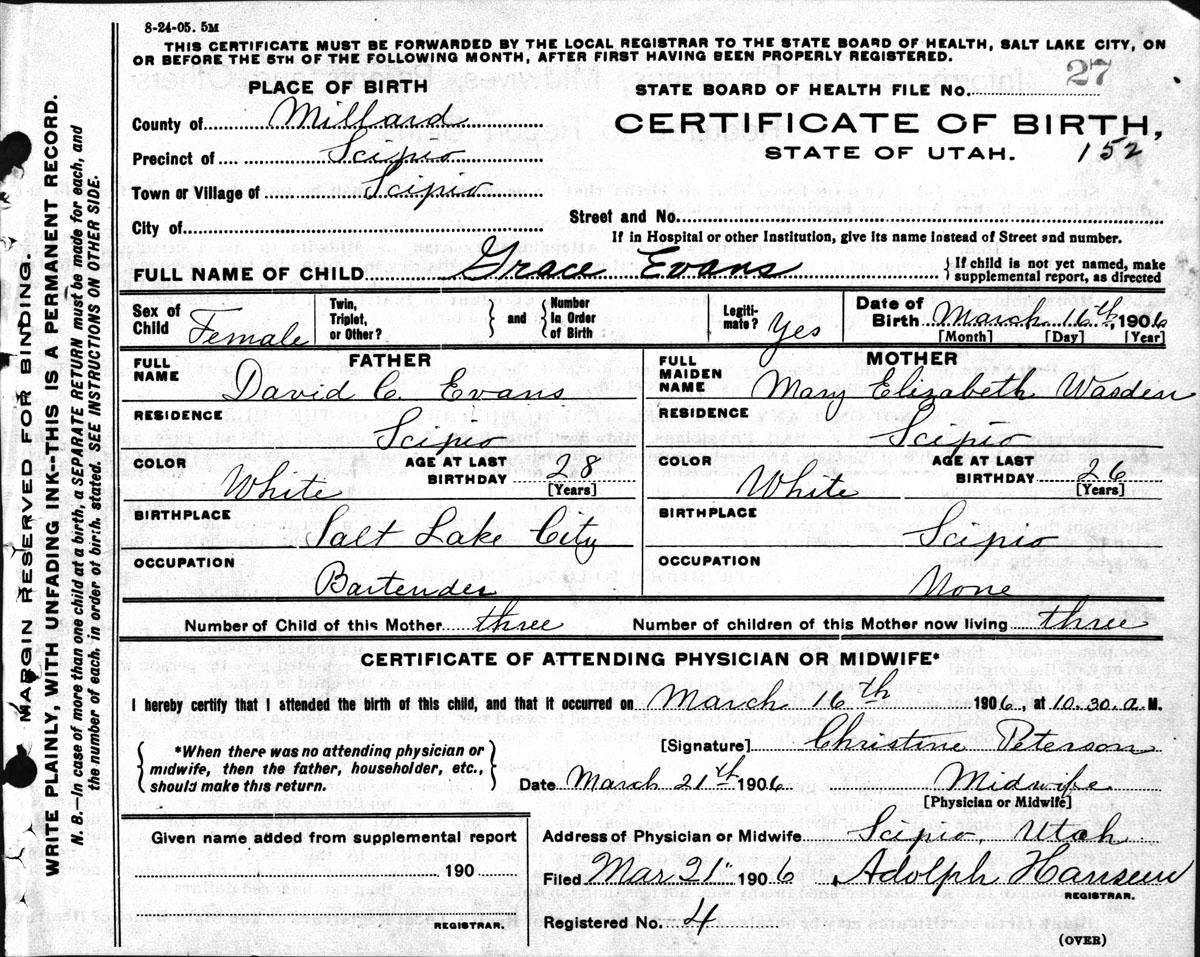 8-24-05. 5M
THIS CERTIFICATE MUST BE FORWARDED BY THE LOCAL REGISTRAR TO THE STATE BOARD OF HEALTH, SALT LAKE CITY, ON
OR BEFORE THE 5TH OF THE FOLLOWING MONTH, AFTER FIRST HAVING BEEN PROPERLY REGISTERED.
PLACE OF BIRTH
STATE BOARD OF HEALTH FILE No. 27
County of Millard
CERTIFICATE OF BIRTH,
Precinct of Scipio
STATE OF UTAH. 152
Town or Village of Scipio
Street and No.
City of
If in Hospital or other Institution, give its name instead of Street and number.
FULL NAME OF CHILD Grace Evans
} If child is not yet named, make
supplemental report, as directed
Sex of Child Female
Twin, Triplet, or Other? } and { Number in Order of Birth
Legiti-mate? Yes
Date of Birth March 16th, 1906
[Month] [Day] [Year]
FATHER
FULL NAME David C. Evans
RESIDENCE
Scipio
COLOR White
AGE AT LAST BIRTHDAY 28
[Years]
BIRTHPLACE
Salt Lake City
OCCUPATION
Bartender
MOTHER
FULL MAIDEN NAME Mary Elizabeth Wasden
RESIDENCE
Scipio
COLOR White
AGE AT LAST BIRTHDAY 26
[Years]
BIRTHPLACE
Scipio
OCCUPATION
None
Number of Child of this Mother three Number of children of this Mother now living three
CERTIFICATE OF ATTENDING PHYSICIAN OR MIDWIFE*
I hereby certify that I attended the birth of this child, and that it occurred on March 16th 1906, at 10.30.a.M.
{ *When there was no attending physician or
midwife, then the father, householder, etc.,
should make this return. }
[Signature] Christine Peterson
Date March 21th 1906 Midwife
[Physician or Midwife]
Given name added from supplemental report
190
REGISTRAR.
Address of Physician or Midwife Scipio, Utah
Filed Mar. 21" 1906, Adolph Hansen
REGISTRAR.
Registered No. 4
(OVER)
MARGIN RESERVED FOR BINDING.
WRITE PLAINLY, WITH UNFADING INK--THIS IS A PERMANENT RECORD.
N. B.--In case of more than one child at a birth, a SEPARATE RETURN must be made for each, and
the number of each, in order of birth, stated. SEE INSTRUCTIONS ON OTHER SIDE.